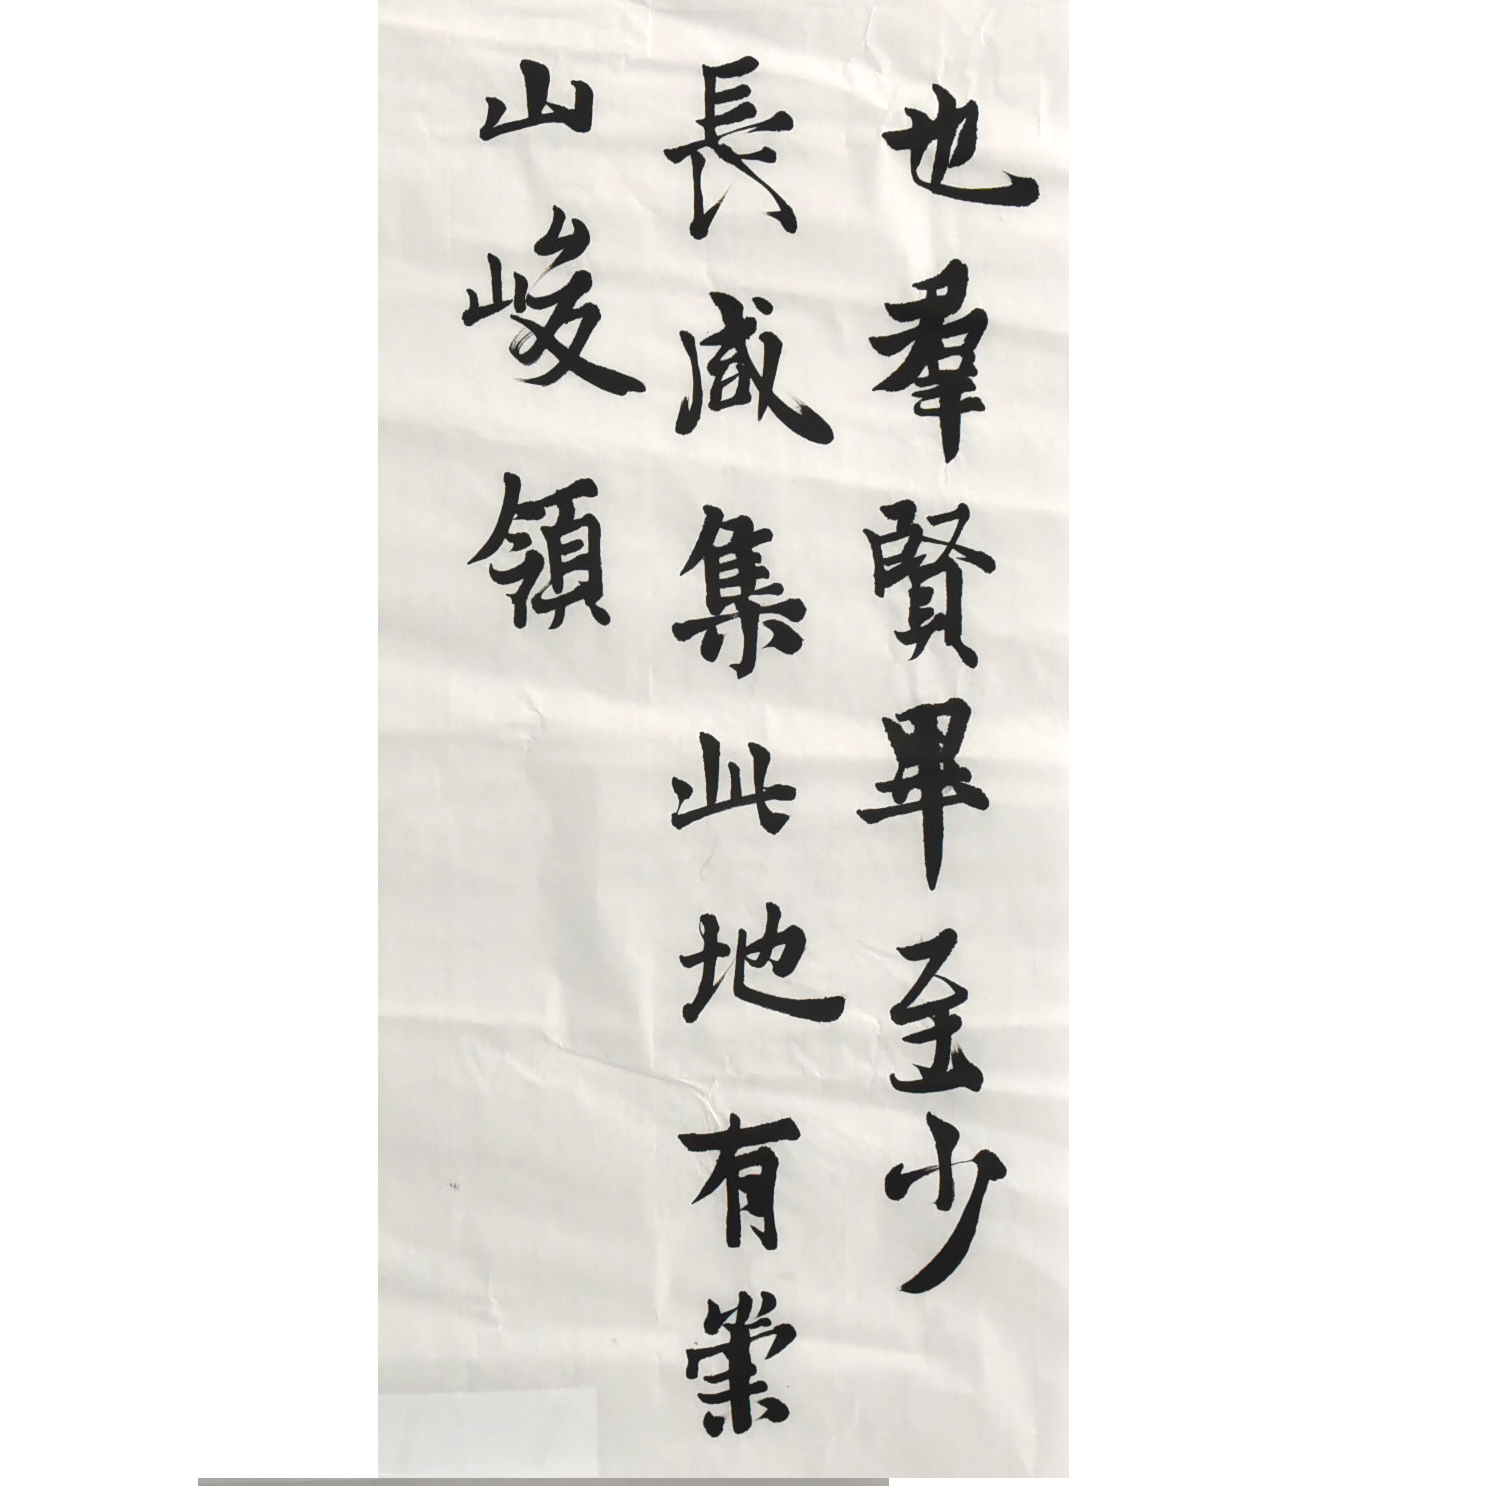 也羣賢畢至少
長咸集此地有崇
山峻領